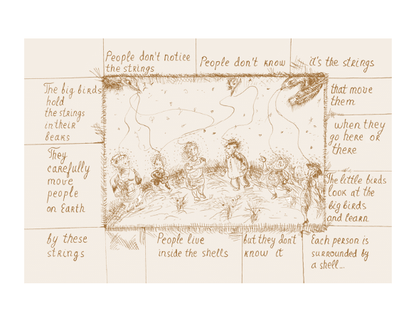 People don't notice
the strings
People don't know
it's the strings
that move
them
when they
go here or
there
The big birds
hold
the strings
in their
beaks
They
carefully
move
people
on Earth
by these
strings
The little birds
look at the
big birds
and learn
People live
inside the shells
but they don't
know it
Each person is
surrounded by
a shell...